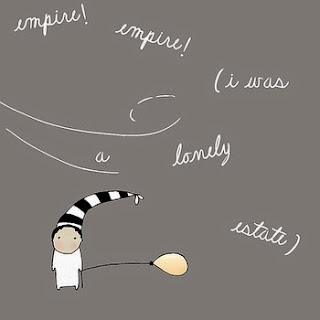 empire! empire!
(i was
a lonely
estate)